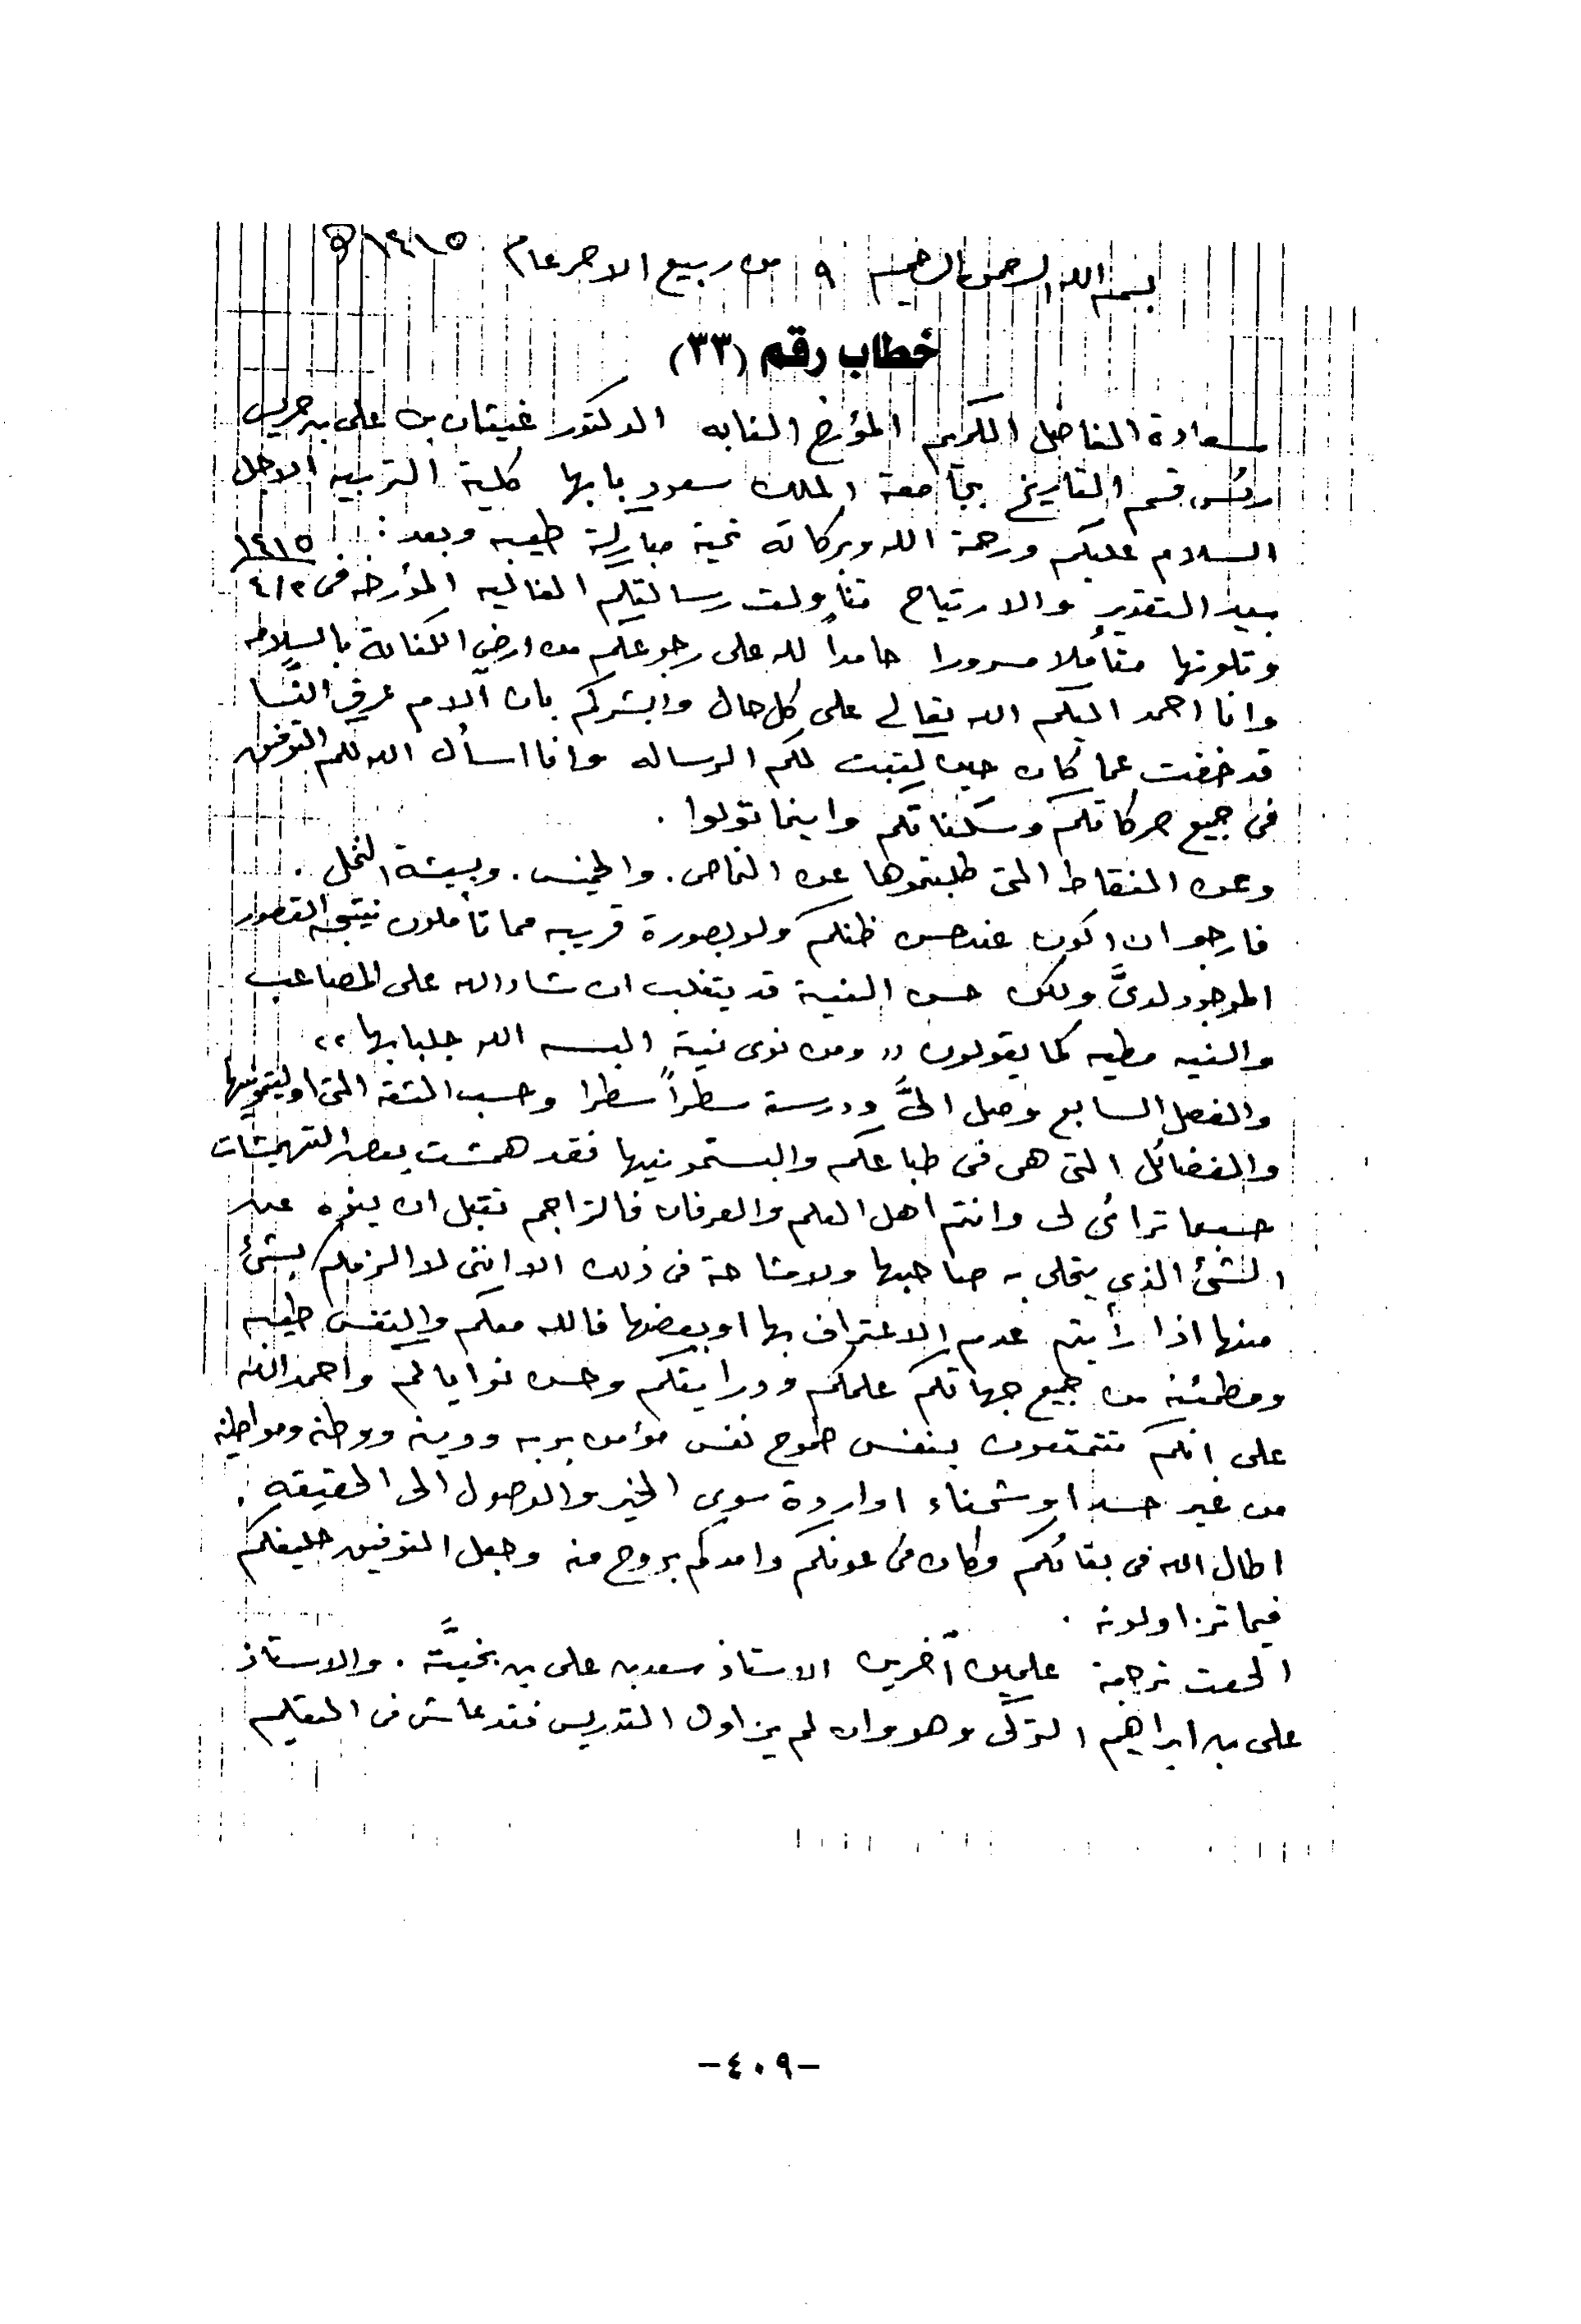 بسم الله الرحمن الرحيم ٩ من ربيع الاخر عام ١٤١٥ ه
خطاب رقم (٣٣)
سعادة الفاضل الكريم المؤرخ النابه الدكتور غيثان بن على بن جريس
رئيس قسم التاريخ بجامعة الملك سعود بابها كلية التربيه الاجل
السلام عليكم ورحمة الله وبركاته تحية مباركة طيبه وبعد :
بيد التقدير والارتياح تناولت رسالتكم الغاليه المؤرخه فى ٤/٢ ١٤١٥
وتلوتها متأملا مسرورا حامداً لله على رجوعكم من ارض الكنانة بالسلامه
وانا احمد اليكم الله تعالى على كل حال وابشركم بان آلام عرق النسا
قد خفت عما كان حين كتبت لكم الرساله وانا اسأل الله لكم التوفيق
فى جميع حركاتكم وسكناتكم واينما تولوا .
وعن النقاط التى طلبتموها عن النماص . والخميس . وبيشة النخل .
فارجو ان اكون عند حسن ظنكم ولو بصورة قريبه مما تأملون نتيجة القصور
الموجود لدىَّ ولكن حسن النية قد يتغلب ان شاء الله على المصاعب
والنيه مطيه كما يقولون " ومن نوى نية البسه الله جلبابها "
والفصل السابع وصل الىَّ ودرسته سطراً سطرا وحسب الثقه التى اوليتمونيها
والفضائل التى هى فى طباعكم والبستمونيها فقد همشت بعض التهميشات
حسبما ترائى لى وانتم اهل العلم والعرفان فالتراجم تقبل ان ينوه عن
الشئ الذى يتحلى به صاحبها ولا مشاحة فى ذلك الا اننى لا الزمكم بشئ
منها اذا رأيتم عدم الاعتراف بها او بعضها فالله معكم والنفس طيبه
ومطمئنه من جميع جهاتكم علمكم ودرايتكم وحسن نواياكم واحمد الله
على انكم تتمتعون بنفس طموح نفس مؤمن بربه ودينه ووطنه ومواطنيه
من غير حسد او شحناء او اردة سوى الخير والوصول الى الحقيقه .
اطال الله فى بقائكم وكان فى عونكم وامدكم بروح منه وجعل التوفيق حليفكم
فيما تزاولونه .
الحقت ترجمة علمين آخرين الاستاذ سعد بن على بن بخيتَّه . والاستاذ
على بن ابراهيم التركى وهو وان لم يزاول التدريس فقد عاش فى التعليم
-٤٠٩-